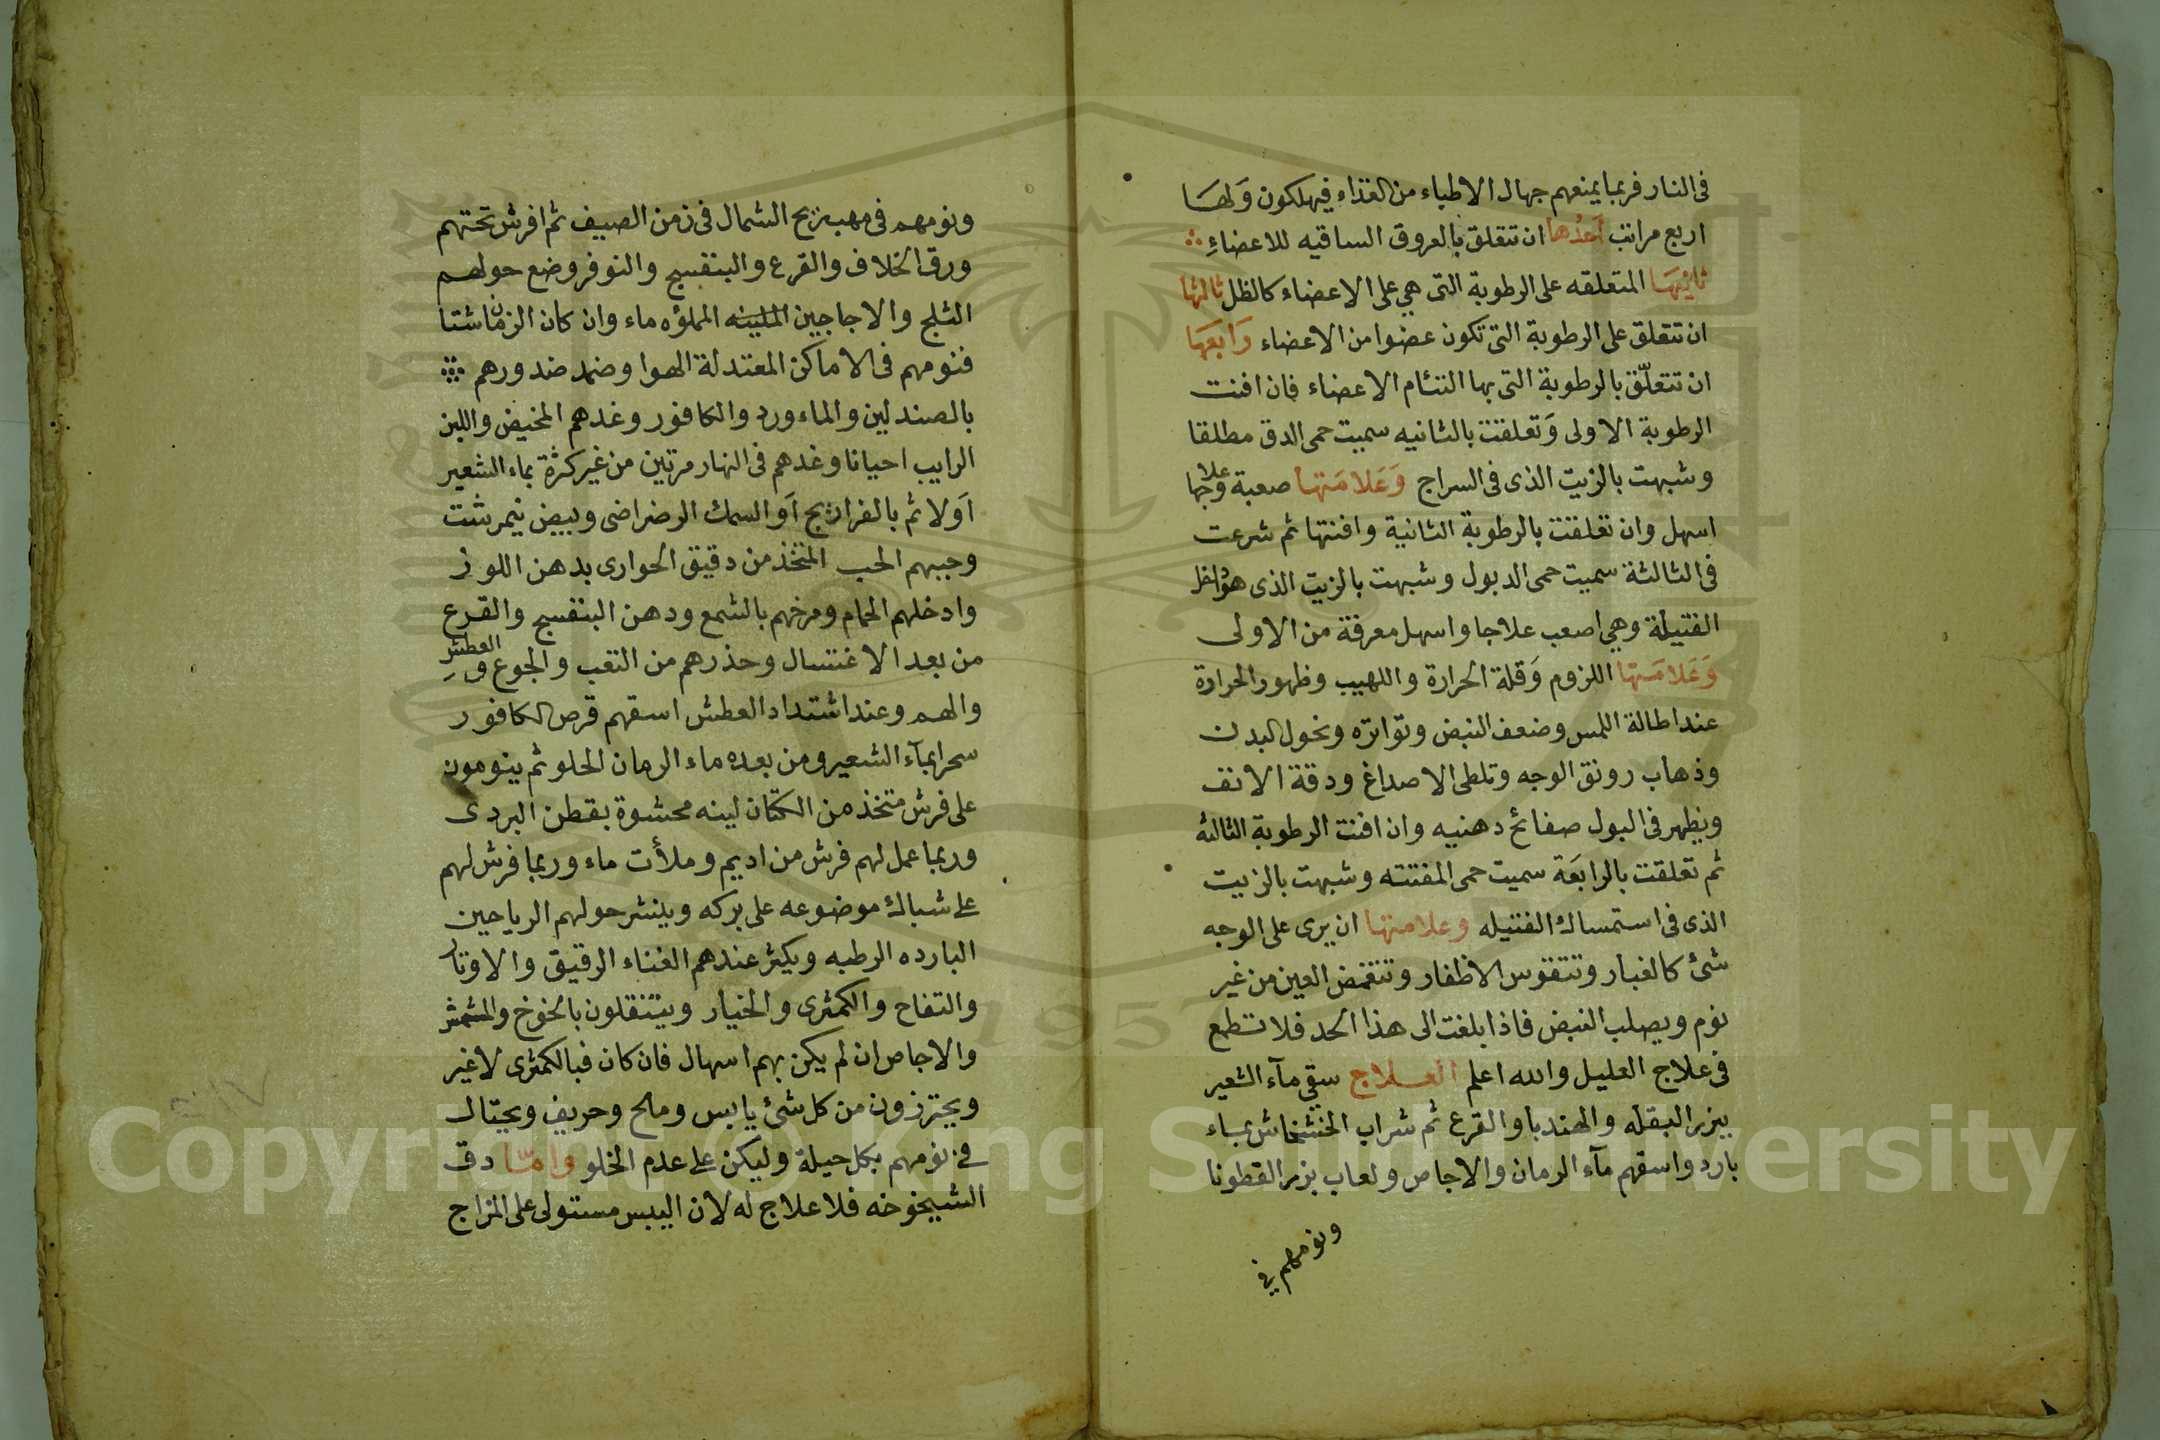 فى النار فربما يمنعهم جهال الاطباء من الغذاء فيهلكون وَلهَا
اربع مراتب أحدُها ان تتعلق بالعروق الساقيه للاعضاءِ
ثانيهَا المتعلقه على الرطوبة التى هي على الاعضاء كالظل ثالثها
ان تتعلق على الرطوبة التى تكون عضوا من الاعضاء رَابعَها
ان تتعلّق بالرطوبة التى بها التئام الاعضاء فان افنت
الرطوبة الاولى وَتعلقت بالثانيه سميت حمى الدق مطلقا
وشبهت بالزيت الذى فى السراج وَعَلامَتها صعبة وعلاجها
اسهل وان تعلقت بالرطوبة الثانية وافنتها ثم شرعت
فى الثالثة سميت حمى الدبول وشبهت بالزيت الذى هو داخل
الفتيلة وهي اصعب علاجا واسهل معرفة من الاولى
وَعَلامَتها اللزوم وَقلة الحرارة واللهيب وظهور الحرارة
عند اطالة اللمس وضعف النبض وتواتره ونحول البدن
وذهاب رونق الوجه وتلطى الاصداغ ودقة الانف
ويظهر فى البول صفائح دهنيه وان افنت الرطوبة الثالثة
ثم تعلقت بالرابعَة سميت حمى المفتته وشبهت بالزيت
الذى فى استمساك الفتيله وعلامتها ان يرى على الوجه
شئ كالغبار وتتقوس الاظفار وتتغمض العين من غير
نوم ويصلب النبض فاذا بلغت الى هذا الحد فلا تطمع
فى علاج العليل والله اعلم العـلاج سقي مآء الشعير
ببزر البقله والهندبا والقرع ثم شراب الخشخاش بماء
بارد واسقهم مآء الرمان والاجاص ولعاب بزر القطونا
ونومهم في
ونومهم فى مهب ريح الشمال فى زمن الصيف ثم افرش تحتهم
ورق الخلاف والقرع والبنفسج والنوفر وضع حولهم
الثلج والاجاجين المليئه المملؤه ماء وان كان الزمان شتا
فنومهم فى الاماكن المعتدلة الهوا وضمد صدورهم
بالصندلين والماء ورد والكافور وغدهم المخيض واللبن
الرايب احيانا وغدهم فى النهار مرتين من غير كثرة بماء الشعير
اَولا ثم بالفراريج اَو السمك الرضراضى وبيض نيمرشت
وجبهم الحب المتخذ من دقيق الحوارى بدهن اللوز
وادخلهم الحمام ومرخهم بالشمع ودهن البنفسج والقرع
من بعد الاغتسال وحذرهم من التعب والجوع والعطش
والهم وعند اشتداد العطش اسقهم قرص الكافور
سحرا بمآء الشعير ومن بعده ماء الرمان الحلو ثم ينومون
على فرش متخذ من الكتان لينه محشوة بقطن البردى
وربما عمل لهم فرش من اديم وملأت ماء وربما فرش لهم
على شباك موضوعه على بركه وينشر حولهم الرياحين
البارده الرطبه ويكثر عندهم الغناء الرقيق والاوتار
والتفاح والكمثرى والخيار ويتنقلون بالخوخ والمشمش
والاجاص ان لم يكن بهم اسهال فان كان فبالكمثرى لا غير
ويحترزون من كل شئ يابس ومالح وحريف ويحتال
في نومهم بكل حيلة وليكن على عدم الخلو وامّا دق
الشيخوخه فلا علاج له لان اليبس مستولى على المزاج
Copyright © King Saud University
1957